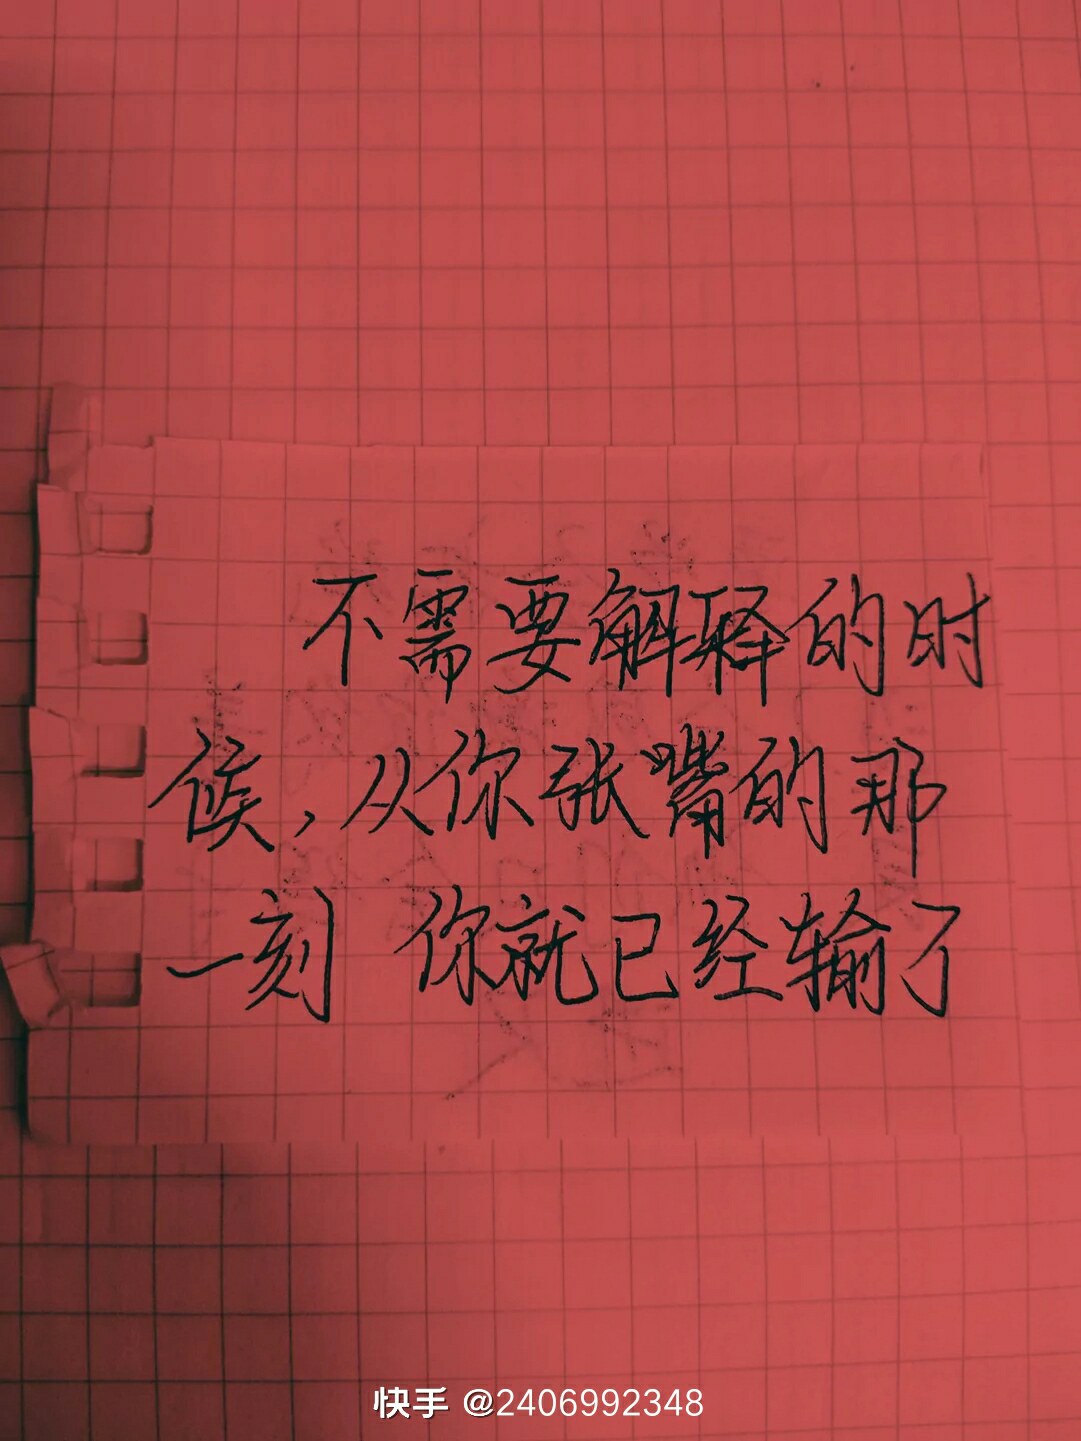 不需要解释的时
候,从你张嘴的那
一刻 你就已经输了
快手 @2406992348